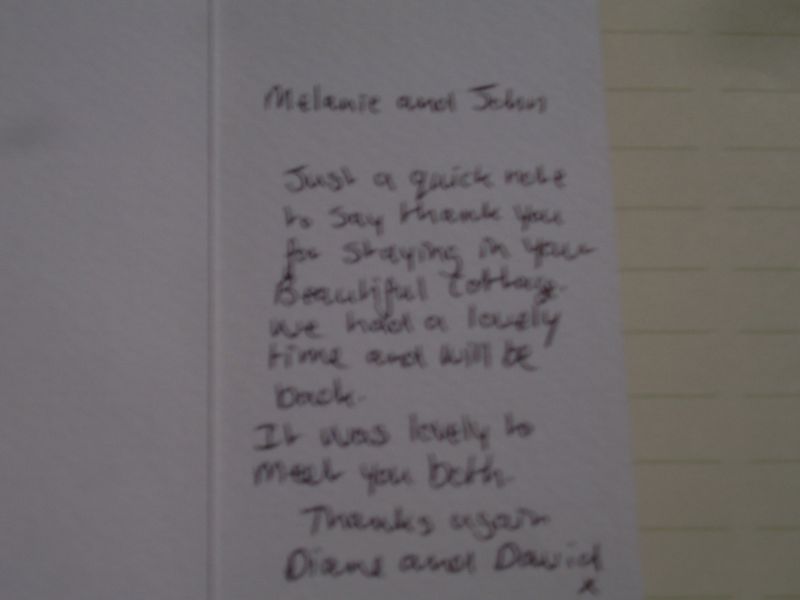 Melanie and John
Just a quick note
to say thank you
for staying in your
Beautiful Cottage.
we had a lovely
time and will be
back.
It was lovely to
meet you both.
Thanks again
Diane and David
x